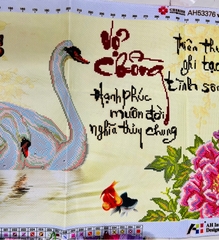 AH53376
Vợ
Chồng
Hạnh phúc
muôn đời
nghĩa thủy chung
thiên thu
ghi tạc
tình son